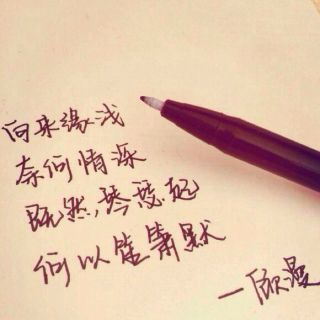 向来缘浅
奈何情深
既然，琴瑟起
何以笙箫默
—顾漫